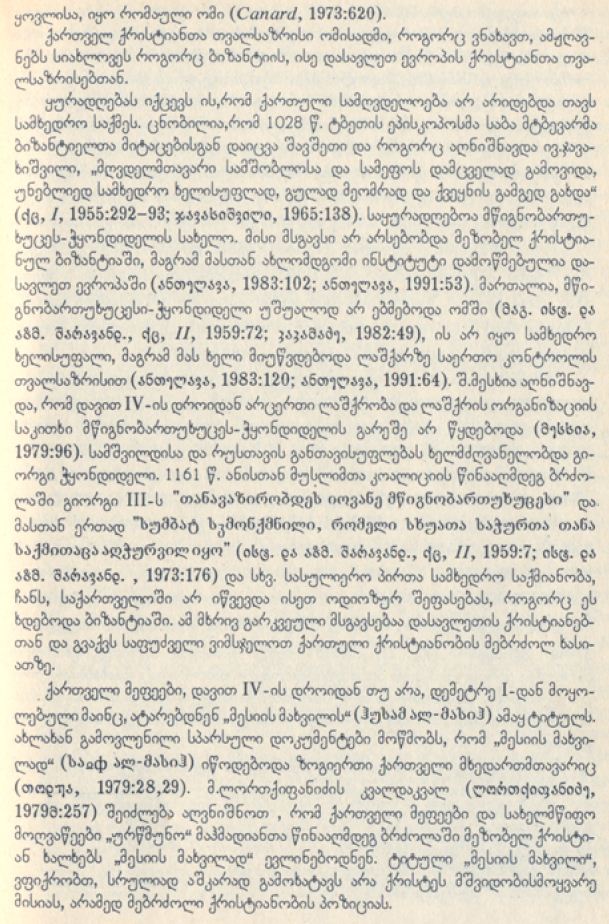 ყოვლისა, იყო რომაული ომი (Canard, 1973:620).
ქართველ ქრისტიანთა თვალსაზრისი ომისადმი, როგორც ვნახავთ, ამჟღავ-
ნებს სიახლოვეს როგორც ბიზანტიის, ისე დასავლეთ ევროპის ქრისტიანთა თვა-
ლსაზრისებთან.
ყურადღებას იქცევს ის,რომ ქართული სამღვდელოება არ არიდებდა თავს
სამხედრო საქმეს. ცნობილია,რომ 1028 წ. ტბეთის ეპისკოპოსმა საბა მტბევარმა
ბიზანტიელთა მიტაცებისგან დაიცვა შავშეთი და როგორც აღნიშნავდა ივ.ჯავა-
ხიშვილი, „მღვდელმთავარი სამშობლოსა და სამეფოს დამცველად გამოვიდა,
უნებლიედ სამხედრო ხელისუფლად, გულად მეომრად და ქვეყნის გამგედ გახდა“
(ქც, I, 1955:292–93; ჯავახიშვილი, 1965:138). საყურადღებოა მწიგნობართუ-
ხუცეს-ჭყონდიდელის სახელო. მისი მსგავსი არ არსებობდა მეზობელ ქრისტია-
ნულ ბიზანტიაში, მაგრამ მასთან ახლომდგომი ინსტიტუტი დამოწმებულია და-
სავლეთ ევროპაში (ანთელავა, 1983:102; ანთელავა, 1991:53). მართალია, მწი-
გნობართუხუცესი-ჭყონდიდელი უშუალოდ არ ებმებოდა ომში (მაგ. ისტ. და
აზმ. შარავანდ., ქც, II, 1959:72; ჯაჯამაძე, 1982:49), ის არ იყო სამხედრო
ხელისუფალი, მაგრამ მას ხელი მიუწვდებოდა ლაშქარზე საერთო კონტროლის
თვალსაზრისით (ანთელავა, 1983:120; ანთელავა, 1991:64). შ.მესხია აღნიშნავ-
და, რომ დავით IV-ის დროიდან არცერთი ლაშქრობა და ლაშქრის ორგანიზაციის
საკითხი მწიგნობართუხუცეს-ჭყონდიდელის გარეშე არ წყდებოდა (მესხია,
1979:96). სამშვილდისა და რუსთავის განთავისუფლებას ხელმძღვანელობდა გი-
ორგი ჭყონდიდელი. 1161 წ. ანისთან მუსლიმთა კოალიციის წინააღმდეგ ბრძო-
ლაში გიორგი III-ს "თანავაზირობდეს იოვანე მწიგნობართუხუცესი" და
მასთან ერთად "სუმბატ სჳმონქმნილი, რომელი სხუათა საჭურთა თანა
საქმითაცა აღჭურვილ იყო" (ისტ. და აზმ. შარავანდ., ქც, II, 1959:7; ისტ. და
აზმ. შარავანდ. , 1973:176) და სხვ. სასულიერო პირთა სამხედრო საქმიანობა,
ჩანს, საქართველოში არ იწვევდა ისეთ ოდიოზურ შეფასებას, როგორც ეს
ხდებოდა ბიზანტიაში. ამ მხრივ გარკვეული მსგავსებაა დასავლეთის ქრისტიანებ-
თან და გვაქვს საფუძველი ვიმსჯელოთ ქართული ქრისტიანობის მებრძოლ ხასი-
ათზე.
ქართველი მეფეები, დავით IV-ის დროიდან თუ არა, დემეტრე I-დან მოყო-
ლებული მაინც, ატარებდნენ „მესიის მახვილის“ (ჰუსამ ალ-მასიჰ) ამაყ ტიტულს.
ახლახან გამოვლენილი სპარსული დოკუმენტები მოწმობს, რომ „მესიის მახვი-
ლად“ (საჲფ ალ-მასიჰ) იწოდებოდა ზოგიერთი ქართველი მხედართმთავარიც
(თოდუა, 1979:28,29). მ.ლორთქიფანიძის კვალდაკვალ (ლორთქიფანიძე,
1979მ:257) შეიძლება აღვნიშნოთ , რომ ქართველი მეფეები და სახელმწიფო
მოღვაწეები „ურწმუნო“ მაჰმადიანთა წინააღმდეგ ბრძოლაში მეზობელ ქრისტი-
ან ხალხებს „მესიის მახვილად“ ევლინებოდნენ. ტიტული „მესიის მახვილი“,
ვფიქრობთ, სრულიად აშკარად გამოხატავს არა ქრისტეს მშვიდობისმოყვარე
მისიას, არამედ მებრძოლი ქრისტიანობის პოზიციას.